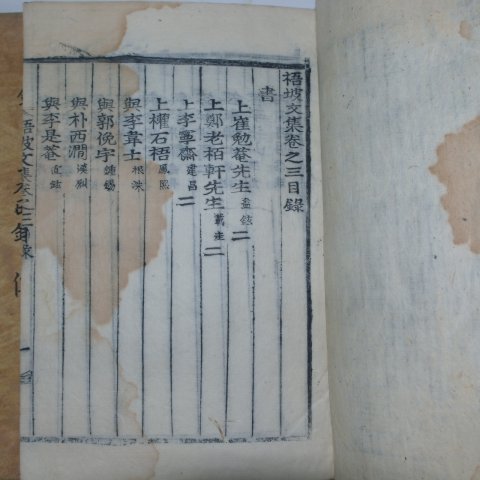 梧坡文集卷之三目錄
書
上崔勉菴先生 益鉉 二
上鄭老栢軒先生 載圭 二
上李寧齋 建昌 二
上權石梧 鳳熙
與李韋士 根洙
與郭俛宇 鍾錫
與朴西澗
與李是菴 直鉉
梧坡文集卷之三 目錄
一